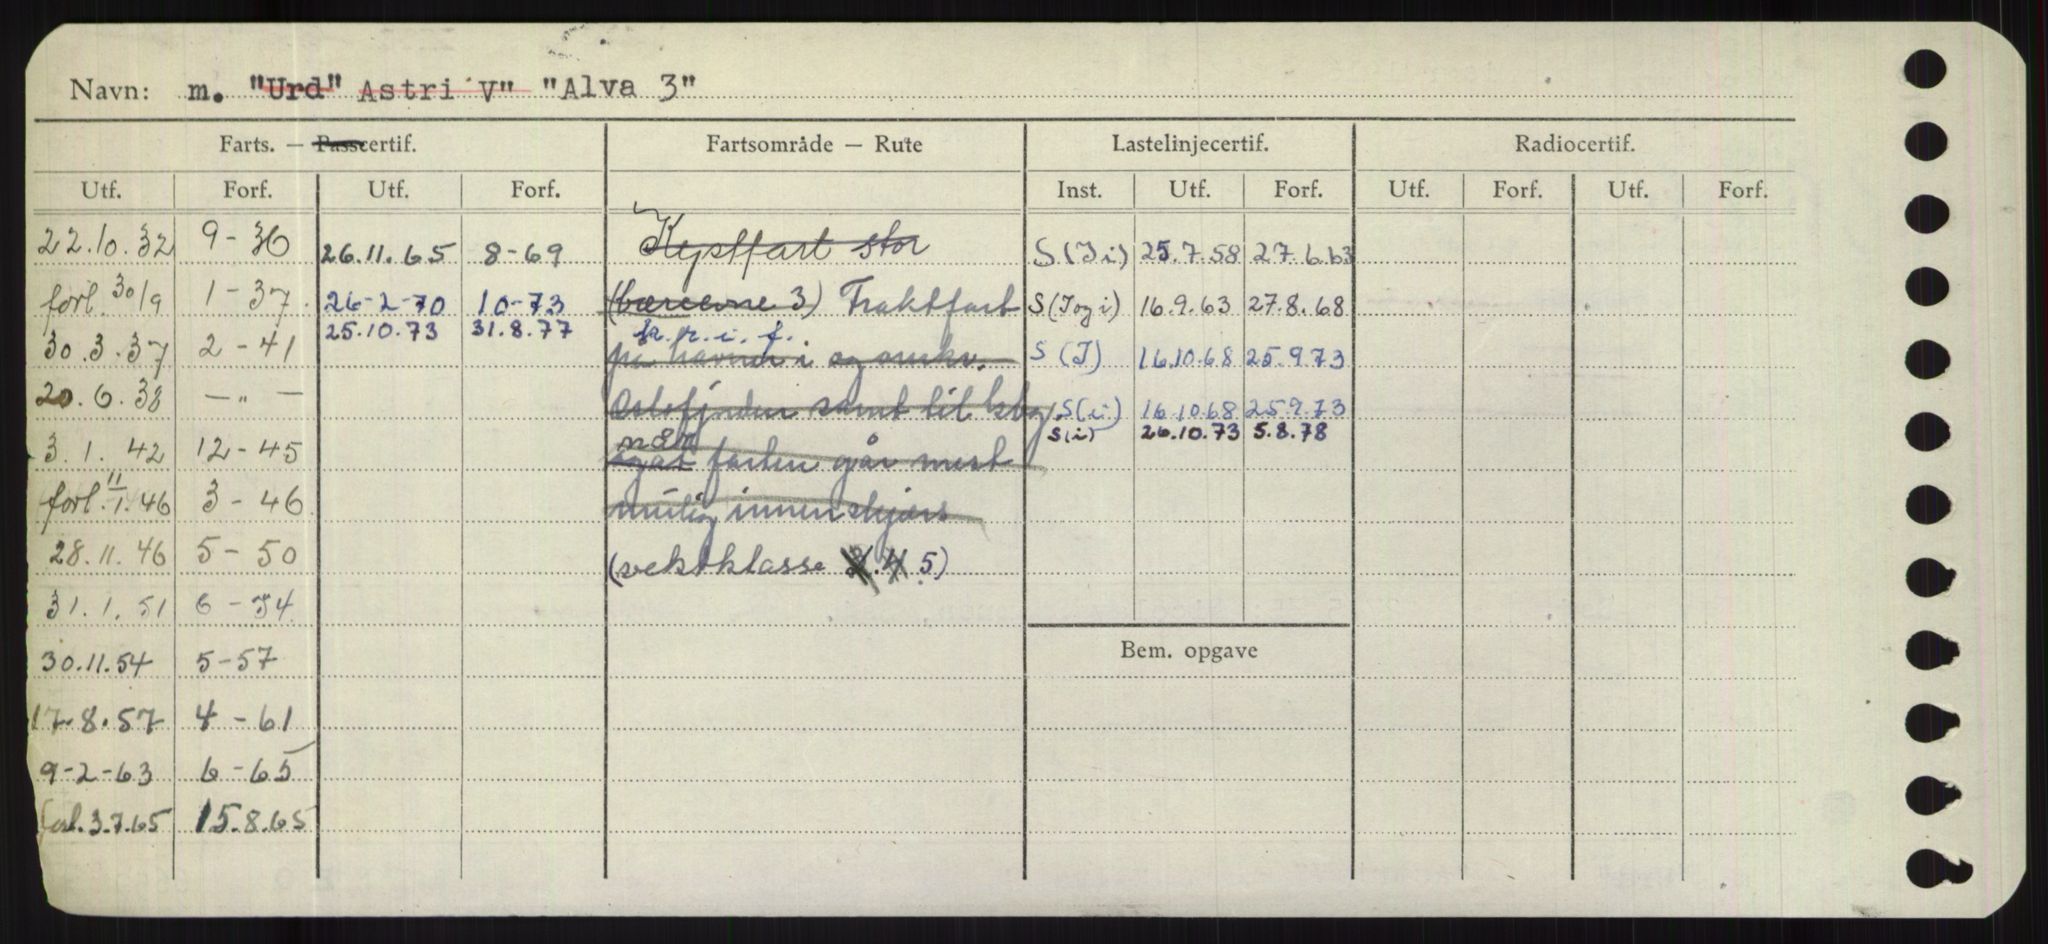 Navn: m. "Urd" Astri V" "Alva 3"
Farts. — Passcertif. Fartsområde — Rute Lastelinjecertif. Radiocertif.
Utf. Forf. Utf. Forf. Inst. Utf. Forf. Utf. Forf. Utf. Forf.
22.10.32 9-36 26.11.65 8-69 Kystfart stor S(Ii) 25.7.58 27.6.63
forl. 30/9 1-37. 26-2-70 10-73 (bæreevne 3) Fraktfart S(Iogi) 16.9.63 27.8.68
25.10.73 31.8.77 k. i. f.
30.3.37 2-41 på havner i og omkr. S(I) 16.10.68 25.9.73
20.6.38 —"— Oslofjorden samt til S(i) 16.10.68 25.9.73
når S(i) 26.10.73 5.8.78
3.1.42 12-45 farten går mest
forl. 11/1.46 3-46 mulig innenskjærs
28.11.46 5-50 (vektklasse 4 5)
31.1.51 6-54
Bem. opgave
30.11.54 5-57
17.8.57 4-61
9-2-63 6-65
forl.3.7.65 15.8.65